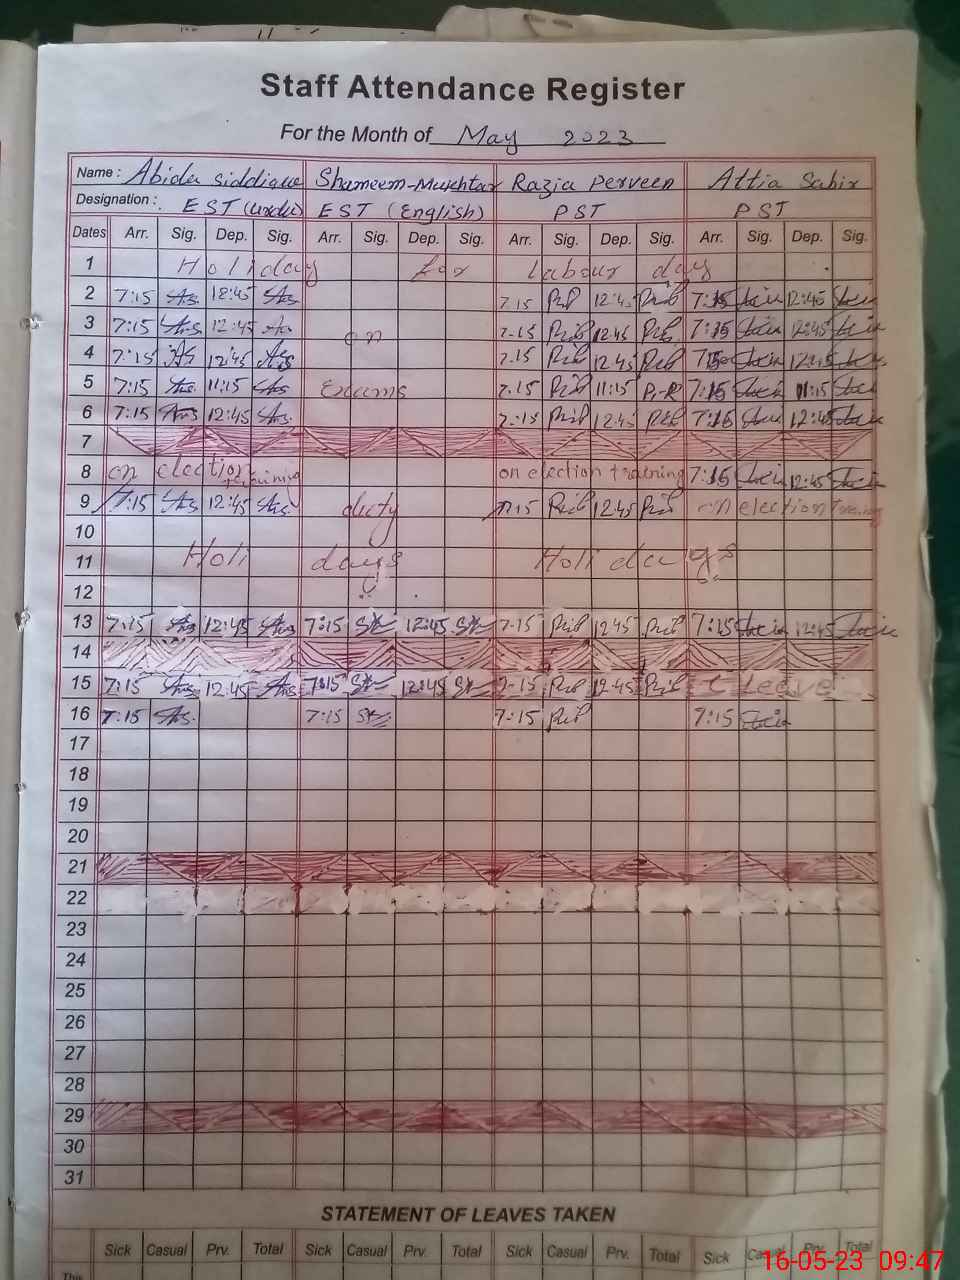 Staff Attendance Register
For the Month of May 2023
Name : Abida Siddique Shameem Mukhtar Razia Perveen Attia Sabir
Designation : EST (urdu) EST (English) PST PST
Dates Arr. Sig. Dep. Sig. Arr. Sig. Dep. Sig. Arr. Sig. Dep. Sig. Arr. Sig. Dep. Sig.
1 Holiday for labour day
2 7:15 12:45 7.15 12:45 7:15 12:45
3 7:15 12:45 on 7.15 12:45 7:15 12:45
4 7:15 12:45 7.15 12:45 7:15 12:45
5 7:15 11:15 Exams 7.15 11:15 7:15 11:15
6 7:15 12:45 7:15 12:45 7:15 12:45
7
8 on election training on election training 7:15 12:45
9 7:15 12:45 duty 7:15 12:45 on election training
10
11 Holi days Holi days
12
13 7:15 12:45 7:15 12:45 7-15 12:45 7:15 12:45
14
15 7:15 12:45 7:15 12:45 7-15 12:45 C Leave
16 7:15 7:15 7:15 7:15
17
18
19
20
21
22
23
24
25
26
27
28
29
30
31
STATEMENT OF LEAVES TAKEN
Sick Casual Prv. Total Sick Casual Prv. Total Sick Casual Prv. Total Sick Casual Prv. Total
This
16-05-23 09:47